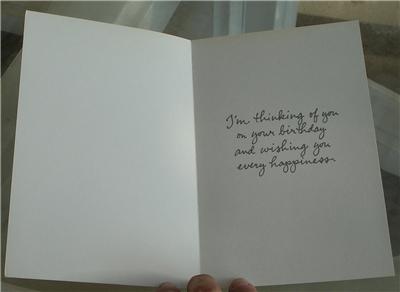 I'm thinking of you
on your birthday
and wishing you
every happiness.